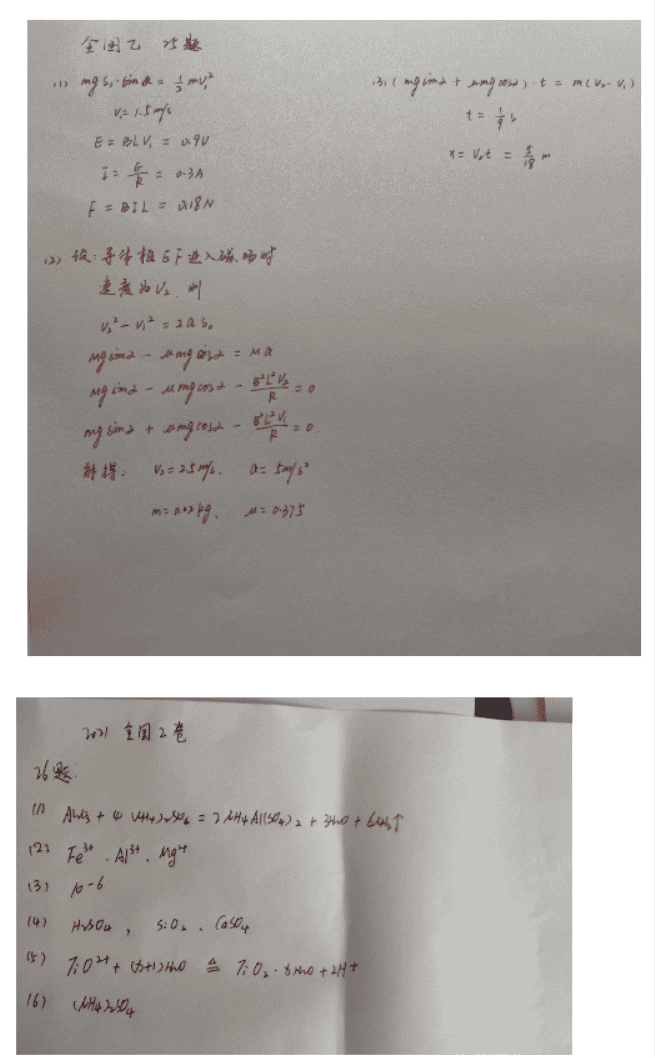 全国乙 25题
(1) mgs₁·sinα = ½mv₁²
v₁ = 1.5m/s
E = BLV₁ = 0.9V
I = E/R = 0.3A
F = BIL = 0.18N
(2) 设: 导体棒EF进入磁场时
速度为V₂, 则
v₂² - v₁² = 2as₀
Mgsinα - μmgcosα = Ma
Mgsinα - μmgcosα - B²L²V₂/R = 0
mgsinα + μmgcosα - B²L²V₁/R = 0
解得: v₂ = 2.5m/s, a = 5m/s²
m = 0.02kg, μ = 0.375
(3) (mgsinα + μmgcosα)·t = m(v₂ - v₁)
t = 1/9 s
x = V₂t = 5/18 m
2021 全国2卷
26题.
(1) Al₂O₃ + 4(NH₄)₂SO₄ = 2NH₄Al(SO₄)₂ + 3H₂O + 6NH₃↑
(2) Fe³⁺, Al³⁺, Mg²⁺
(3) 10⁻⁶
(4) H₂SO₄, SiO₂, CaSO₄
(5) TiO²⁺ + (x+1)H₂O ≜ TiO₂·xH₂O + 2H⁺
(6) (NH₄)₂SO₄